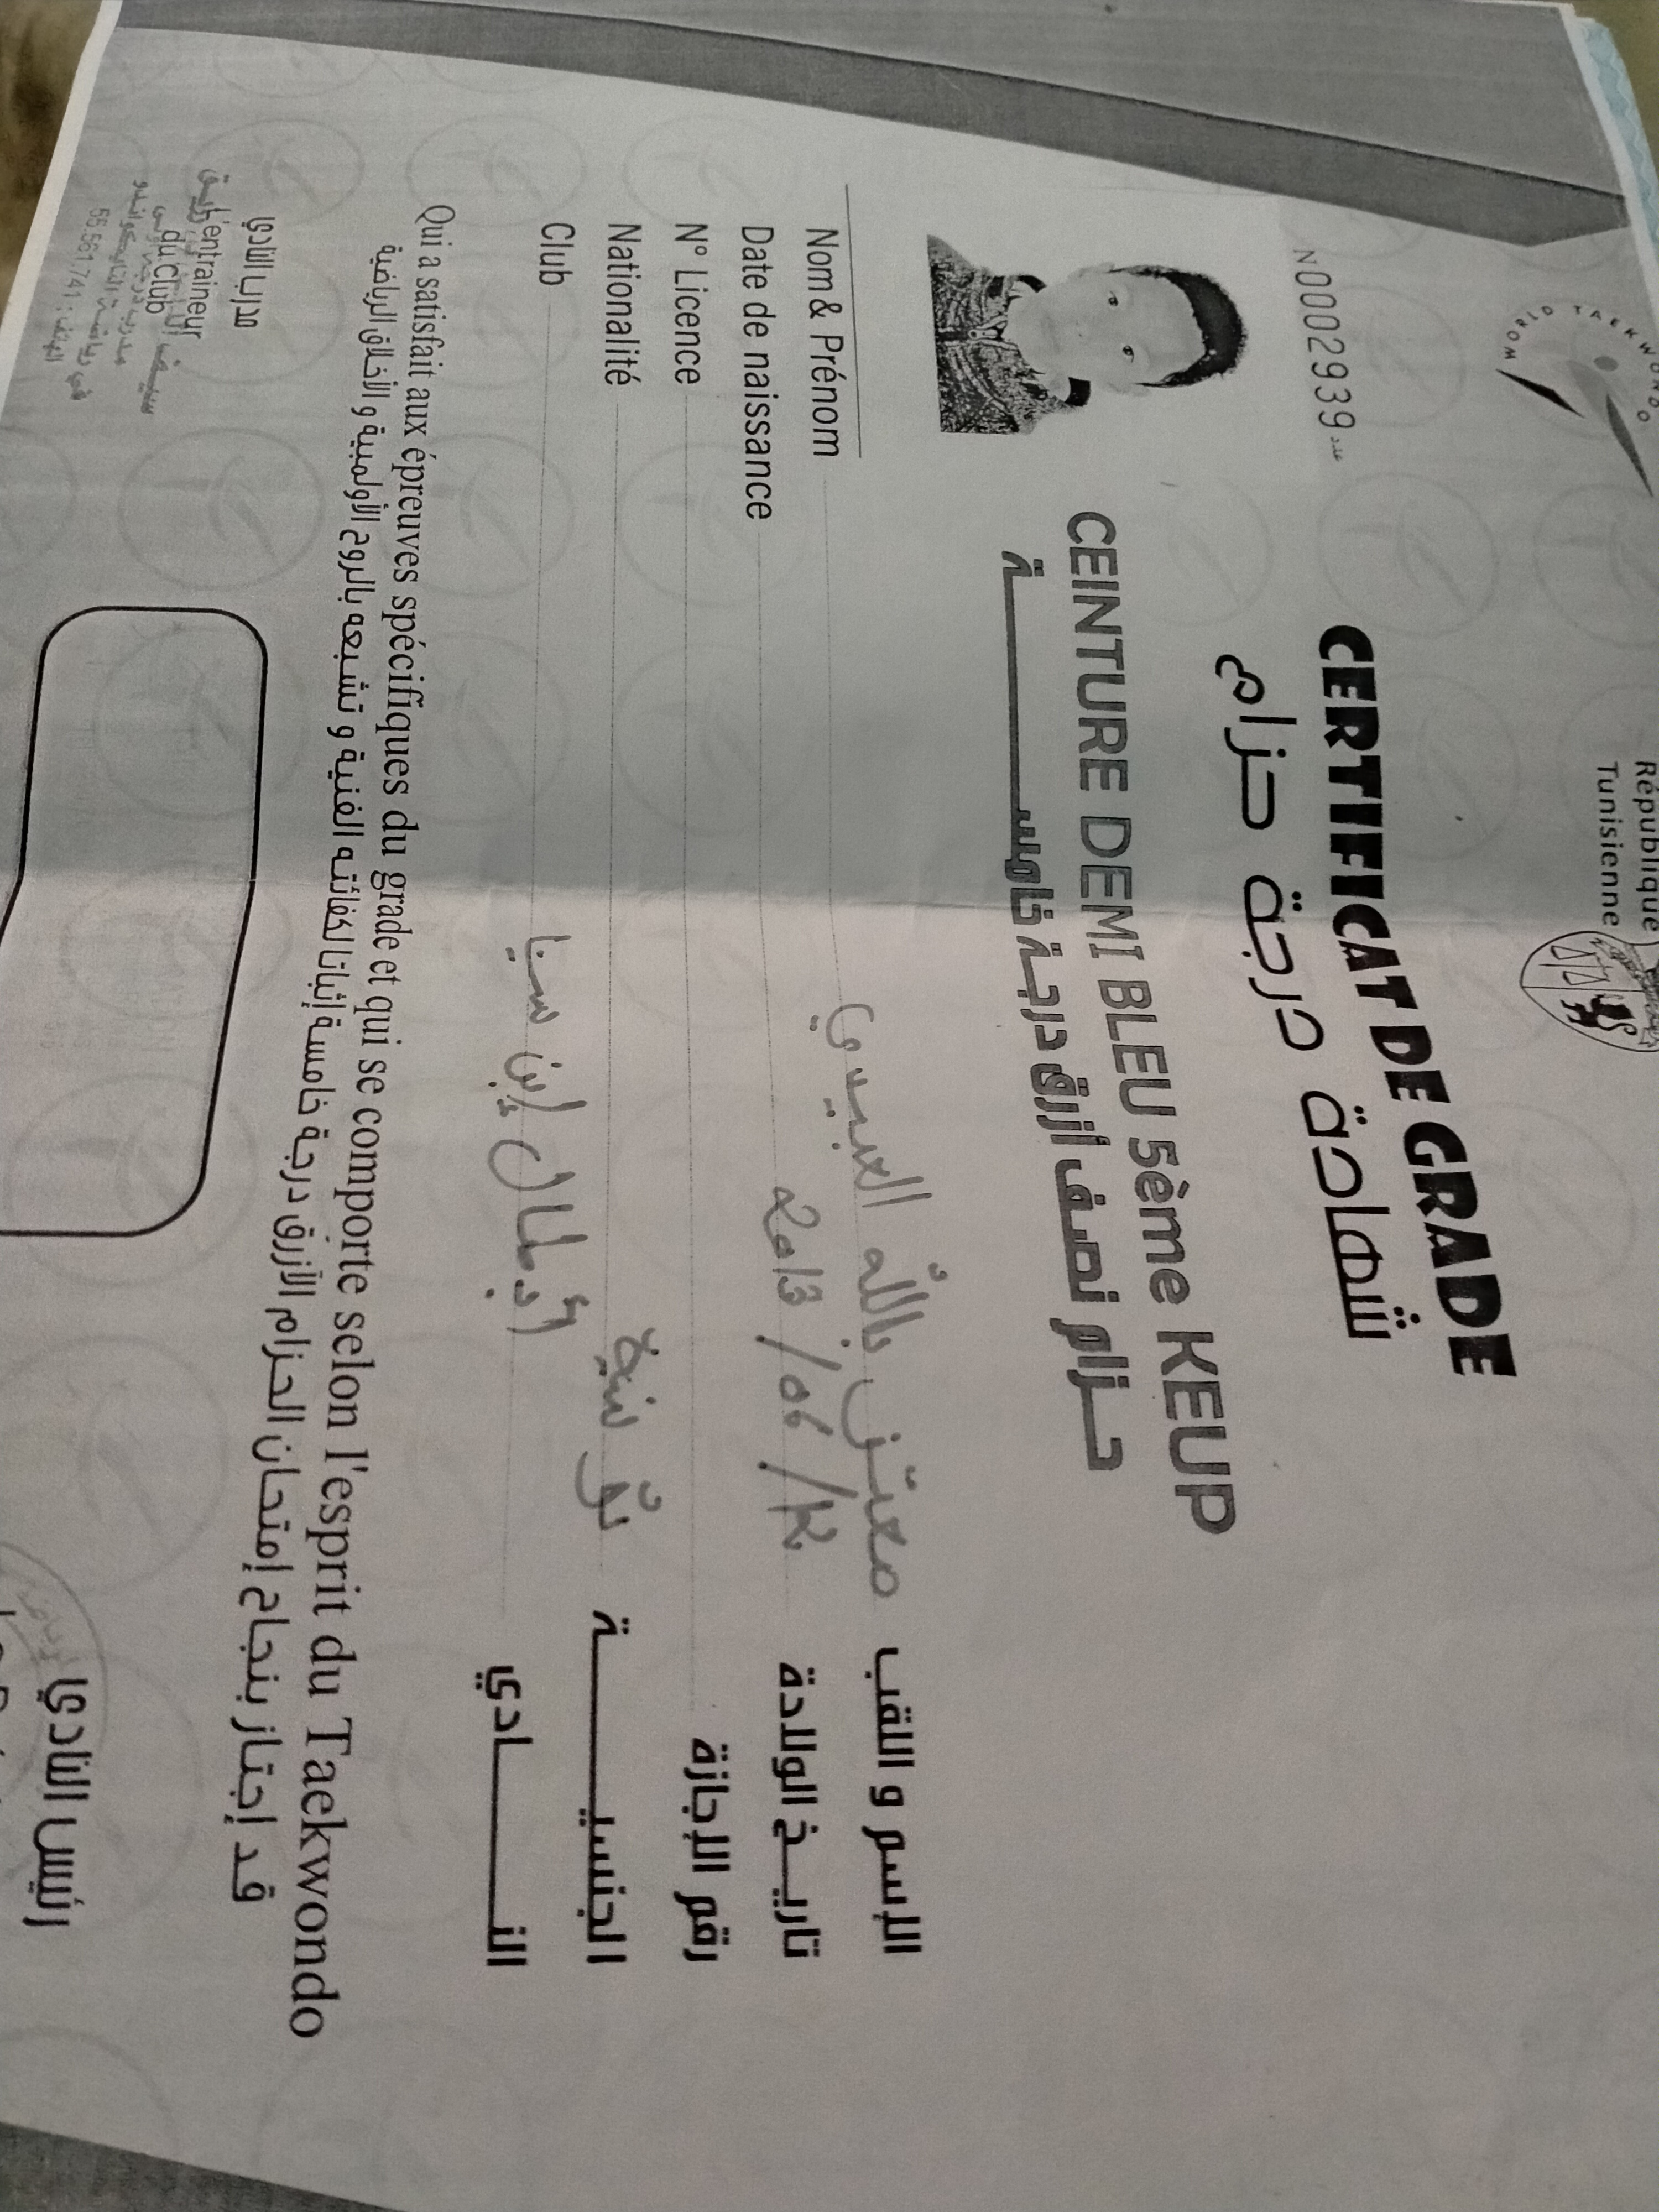 WORLD TAEKWONDO
République
Tunisienne
N0002939 عدد
CERTIFICAT DE GRADE
شهادة درجة حزام
CEINTURE DEMI BLEU 5ème KEUP
حــزام نصـف أزرق درجـة خامســـة
Nom & Prénom معتز بالله العبيدي الإسم و اللقب
Date de naissance 2013 / 06 / تاريـخ الولادة
N° Licence رقم الإجازة
Nationalité تونسية الجنسيــــة
Club أبطال إبن سينا النـــــادي
Qui a satisfait aux épreuves spécifiques du grade et qui se comporte selon l'esprit du Taekwondo
قد إجتاز بنجاح إمتحان الحزام الأزرق درجة خامسة إثباتا لكفائته الفنية و تشبعه بالروح الأولمبية و الأخلاق الرياضية
مدرب النادي
L'entraineur
du club
الهاتف : 55.561.741
رئيس النادي